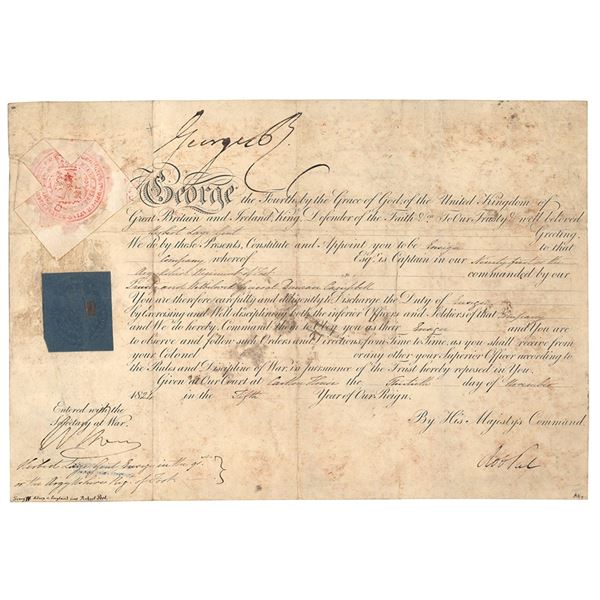 George R.
George the Fourth by the Grace of God, of the United Kingdom of
Great Britain and Ireland King, Defender of the Faith &c To Our Trusty & well beloved
Gent Greeting,
We do by these Presents, Constitute and Appoint you to be Ensign to that
Company whereof Esqr. is Captain in our Ninety first or the
Argyllshire Regiment of Foot commanded by our
General Duncan Campbell
You are therefore carefully and diligently to Discharge the Duty of Ensign
by Exercising and Well disciplining both the inferior Officers and Soldiers of that Company
and We do hereby Command them to Obey you as their Ensign and You are
to observe and follow such Orders and Directions, from Time to Time, as you shall receive from
your Colonel or any other your Superior Officer according to
the Rules and Discipline of War, in pursuance of the Trust hereby reposed in You.
Given at Our Court at Carlton House the day of November
182 in the Fifth Year of Our Reign.
Entered with the
Secretary at War.
By His Majesty's Command.
Robt Peel
Gent Ensign in the 91st
or the Argyllshire Reg. of Foot
George IV King of England and Robert Peel